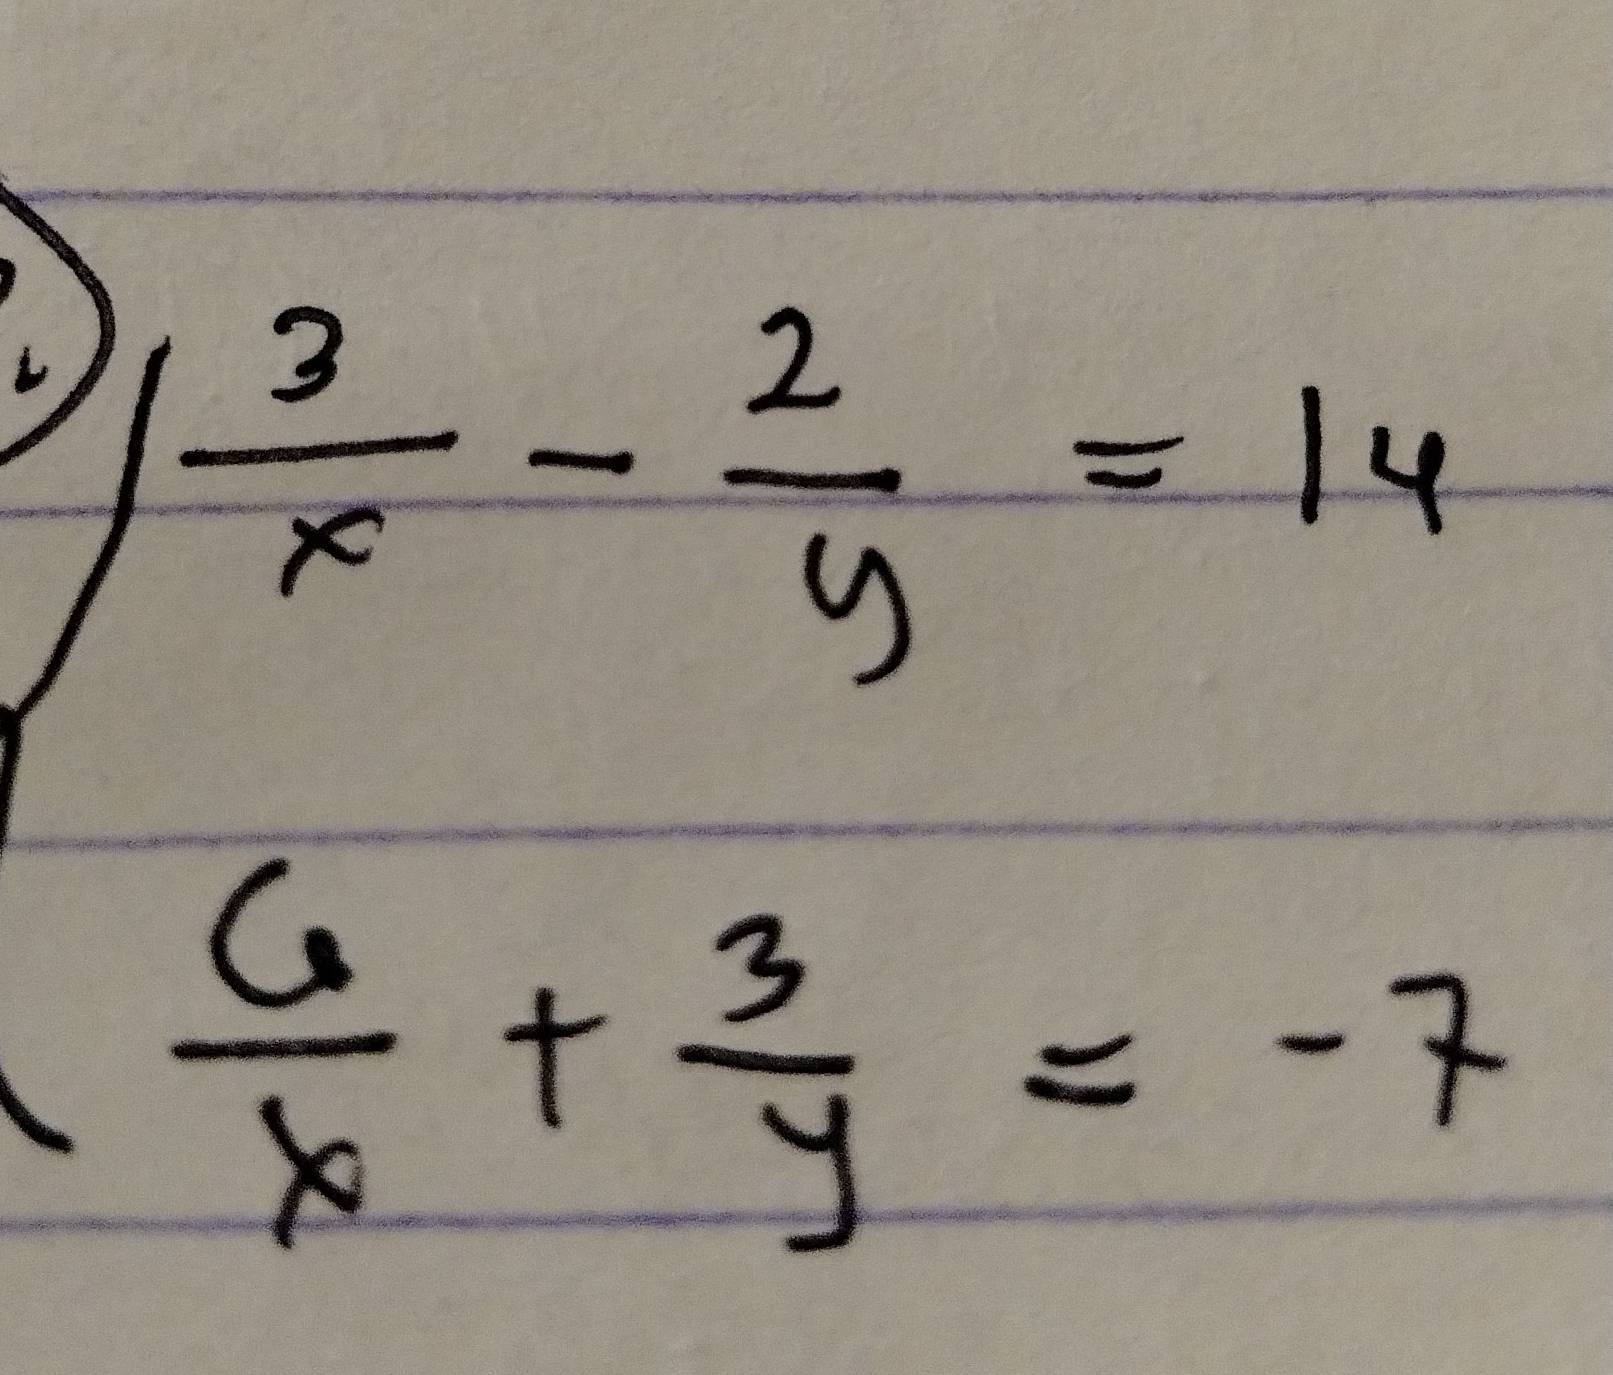 3/x - 2/y = 14
6/x + 3/y = -7